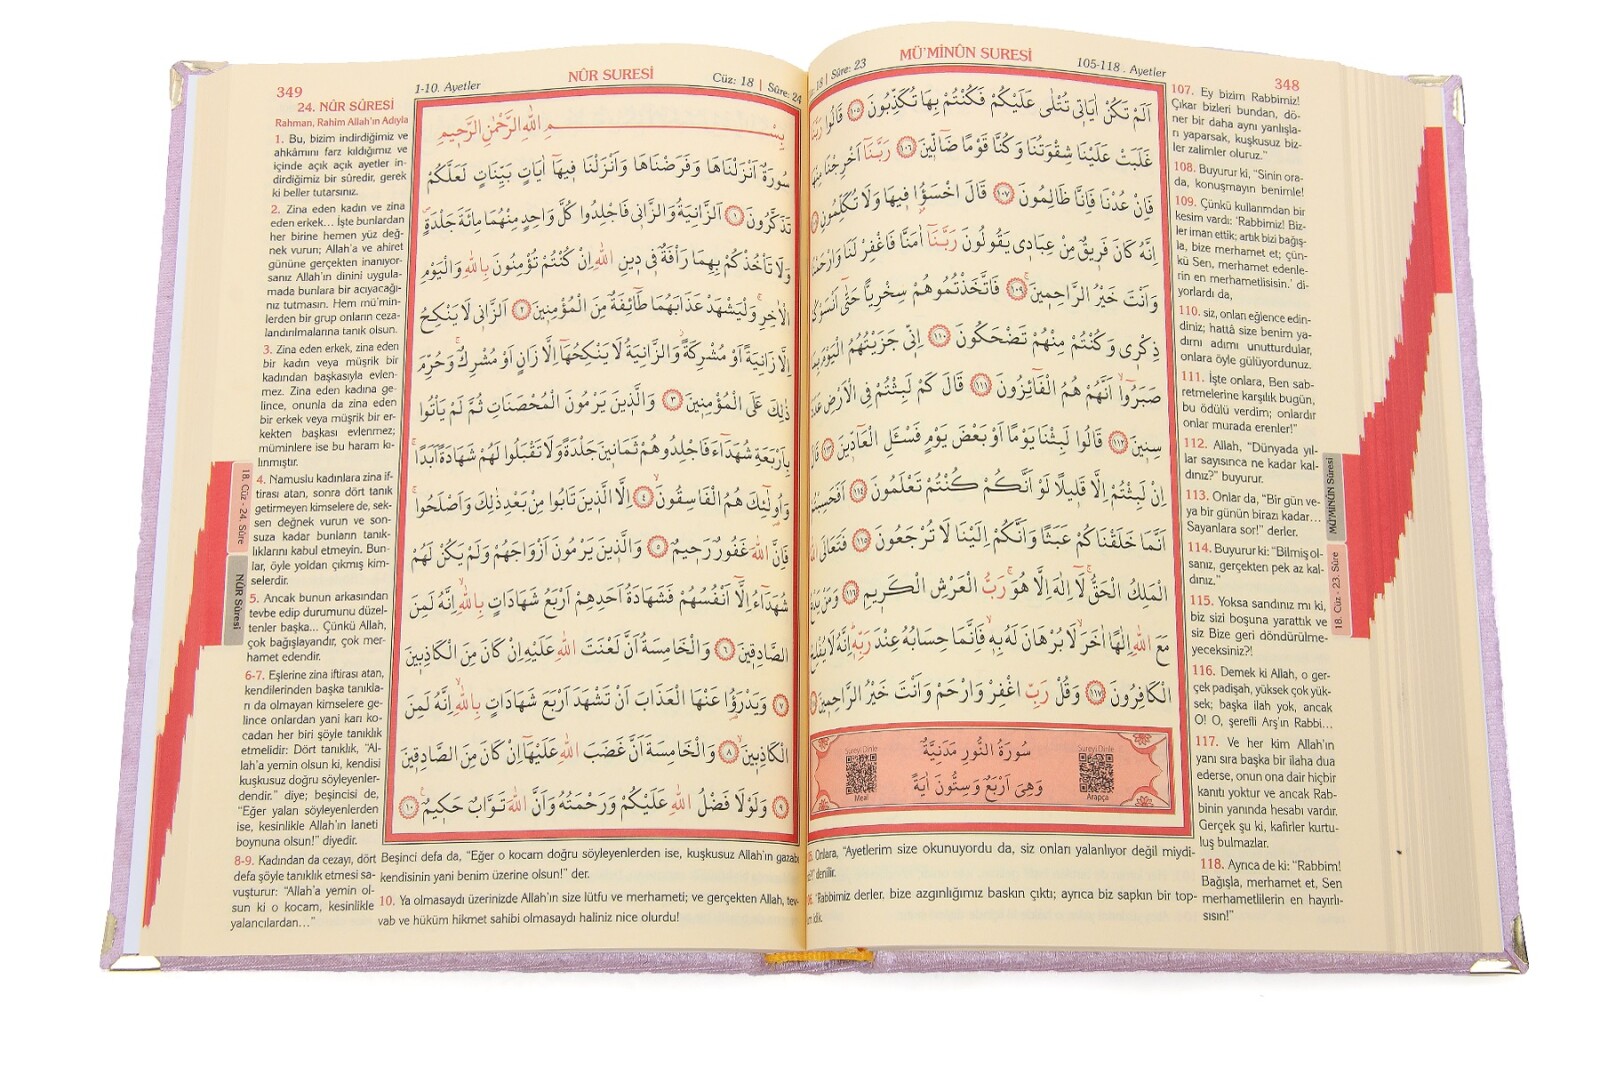 105-118. Ayetler
MÜ'MİNÛN SURESİ
18 | Sûre: 23
348
اَلَمْ تَكُنْ اٰيَات۪ي تُتْلٰى عَلَيْكُمْ فَكُنْتُمْ بِهَا تُكَذِّبُونَ ١٠٥ قَالُوا رَبَّنَا
غَلَبَتْ عَلَيْنَا شِقْوَتُنَا وَكُنَّا قَوْمًا ضَٓالّ۪ينَ ١٠٦ رَبَّنَٓا اَخْرِجْنَا مِنْهَا
فَاِنْ عُدْنَا فَاِنَّا ظَالِمُونَ ١٠٧ قَالَ اخْسَؤُ۫ا ف۪يهَا وَلَا تُكَلِّمُونِ
اِنَّهُ كَانَ فَر۪يقٌ مِنْ عِبَاد۪ي يَقُولُونَ رَبَّنَٓا اٰمَنَّا فَاغْفِرْ لَنَا وَارْحَمْنَا
وَاَنْتَ خَيْرُ الرَّاحِم۪ينَ ١٠٩ فَاتَّخَذْتُمُوهُمْ سِخْرِيًّا حَتّٰٓى اَنْسَوْكُمْ
ذِكْر۪ي وَكُنْتُمْ مِنْهُمْ تَضْحَكُونَ ١١٠ اِنّ۪ي جَزَيْتُهُمُ الْيَوْمَ بِمَا
صَبَرُٓوا اَنَّهُمْ هُمُ الْفَٓائِزُونَ ١١١ قَالَ كَمْ لَبِثْتُمْ فِي الْاَرْضِ عَدَدَ
سِن۪ينَ ١١٢ قَالُوا لَبِثْنَا يَوْمًا اَوْ بَعْضَ يَوْمٍ فَسْـَٔلِ الْعَٓادّ۪ينَ ١١٣ قَالَ
اِنْ لَبِثْتُمْ اِلَّا قَل۪يلًا لَوْ اَنَّكُمْ كُنْتُمْ تَعْلَمُونَ ١١٤ اَفَحَسِبْتُمْ
اَنَّمَا خَلَقْنَاكُمْ عَبَثًا وَاَنَّكُمْ اِلَيْنَا لَا تُرْجَعُونَ ١١٥ فَتَعَالَى اللّٰهُ
الْمَلِكُ الْحَقُّۚ لَٓا اِلٰهَ اِلَّا هُوَۚ رَبُّ الْعَرْشِ الْكَر۪يمِ ١١٦ وَمَنْ يَدْعُ
مَعَ اللّٰهِ اِلٰهًا اٰخَرَۙ لَا بُرْهَانَ لَهُ بِه۪ۙ فَاِنَّمَا حِسَابُهُ عِنْدَ رَبِّه۪ۜ اِنَّهُ لَا يُفْلِحُ
الْكَافِرُونَ ١١٧ وَقُلْ رَبِّ اغْفِرْ وَارْحَمْ وَاَنْتَ خَيْرُ الرَّاحِم۪ينَ
سُورَةُ النُّورِ مَدَنِيَّةٌ
وَهِيَ اَرْبَعٌ وَسِتُّونَ اٰيَةً
Sureyi Dinle
Arapça
Sureyi Dinle
Meal
Onlara, "Ayetlerim size okunuyordu da, siz onları yalanlıyor değil miydi-
denilir.
"Rabbimiz derler, bize azgınlığımız baskın çıktı; ayrıca biz sapkın bir top-
idik.
107. Ey bizim Rabbimiz!
Çıkar bizleri bundan, dö-
ner bir daha aynı yanlışla-
rı yaparsak, kuşkusuz biz-
ler zalimler oluruz."
108. Buyurur ki, "Sinin ora-
da, konuşmayın benimle!
109. Çünkü kullarımdan bir
kesim vardı: 'Rabbimiz! Biz-
ler iman ettik; artık bizi bağış-
la, bize merhamet et; çün-
kü Sen, merhamet edenle-
rin en merhametlisisin.' di-
yorlardı da,
110. siz, onları eğlence edin-
diniz; hattâ size benim ya-
dımı adımı unutturdular,
onlara öyle gülüyordunuz.
111. İşte onlara, Ben sab-
retmelerine karşılık bugün,
bu ödülü verdim; onlardır
onlar murada erenler!"
112. Allah, "Dünyada yıl-
lar sayısınca ne kadar kal-
dınız?" buyurur.
113. Onlar da, "Bir gün ve-
ya bir günün birazı kadar...
Sayanlara sor!" derler.
114. Buyurur ki: "Bilmiş ol-
sanız, gerçekten pek az kal-
dınız."
115. Yoksa sandınız mı ki,
biz sizi boşuna yarattık ve
siz Bize geri döndürülme-
yeceksiniz?!
116. Demek ki Allah, o ger-
çek padişah, yüksek çok yük-
sek; başka ilah yok, ancak
O! O, şerefli Arş'ın Rabbi...
117. Ve her kim Allah'ın
yanı sıra başka bir ilaha dua
ederse, onun ona dair hiçbir
kanıtı yoktur ve ancak Rab-
binin yanında hesabı vardır.
Gerçek şu ki, kafirler kurtu-
luş bulmazlar.
118. Ayrıca de ki: "Rabbim!
Bağışla, merhamet et, Sen
merhametlilerin en hayırlı-
sısın!"
MÜ'MİNÛN Sûresi
18. Cüz - 23. Sûre
349
1-10. Ayetler
NÛR SURESİ
Cüz: 18 | Sûre: 24
بِسْمِ اللّٰهِ الرَّحْمٰنِ الرَّح۪يمِ
سُورَةٌ اَنْزَلْنَاهَا وَفَرَضْنَاهَا وَاَنْزَلْنَا ف۪يهَٓا اٰيَاتٍ بَيِّنَاتٍ لَعَلَّكُمْ
تَذَكَّرُونَ ١ اَلزَّانِيَةُ وَالزَّان۪ي فَاجْلِدُوا كُلَّ وَاحِدٍ مِنْهُمَا مِائَةَ جَلْدَةٍۖ
وَلَا تَأْخُذْكُمْ بِهِمَا رَأْفَةٌ ف۪ي د۪ينِ اللّٰهِ اِنْ كُنْتُمْ تُؤْمِنُونَ بِاللّٰهِ وَالْيَوْمِ
الْاٰخِرِۚ وَلْيَشْهَدْ عَذَابَهُمَا طَٓائِفَةٌ مِنَ الْمُؤْمِن۪ينَ ٢ اَلزَّان۪ي لَا يَنْكِحُ
اِلَّا زَانِيَةً اَوْ مُشْرِكَةًۘ وَالزَّانِيَةُ لَا يَنْكِحُهَٓا اِلَّا زَانٍ اَوْ مُشْرِكٌۚ وَحُرِّمَ
ذٰلِكَ عَلَى الْمُؤْمِن۪ينَ ٣ وَالَّذ۪ينَ يَرْمُونَ الْمُحْصَنَاتِ ثُمَّ لَمْ يَأْتُوا
بِاَرْبَعَةِ شُهَدَٓاءَ فَاجْلِدُوهُمْ ثَمَان۪ينَ جَلْدَةً وَلَا تَقْبَلُوا لَهُمْ شَهَادَةً اَبَدًاۚ
وَاُو۬لٰٓئِكَ هُمُ الْفَاسِقُونَۙ ٤ اِلَّا الَّذ۪ينَ تَابُوا مِنْ بَعْدِ ذٰلِكَ وَاَصْلَحُواۚ
فَاِنَّ اللّٰهَ غَفُورٌ رَح۪يمٌ ٥ وَالَّذ۪ينَ يَرْمُونَ اَزْوَاجَهُمْ وَلَمْ يَكُنْ لَهُمْ
شُهَدَٓاءُ اِلَّٓا اَنْفُسُهُمْ فَشَهَادَةُ اَحَدِهِمْ اَرْبَعُ شَهَادَاتٍ بِاللّٰهِۙ اِنَّهُ لَمِنَ
الصَّادِق۪ينَ ٦ وَالْخَامِسَةُ اَنَّ لَعْنَتَ اللّٰهِ عَلَيْهِ اِنْ كَانَ مِنَ الْكَاذِب۪ينَ
٧ وَيَدْرَؤُ۬ا عَنْهَا الْعَذَابَ اَنْ تَشْهَدَ اَرْبَعَ شَهَادَاتٍ بِاللّٰهِۙ اِنَّهُ لَمِنَ
الْكَاذِب۪ينَ ٨ وَالْخَامِسَةَ اَنَّ غَضَبَ اللّٰهِ عَلَيْهَٓا اِنْ كَانَ مِنَ الصَّادِق۪ينَ
٩ وَلَوْلَا فَضْلُ اللّٰهِ عَلَيْكُمْ وَرَحْمَتُهُ وَاَنَّ اللّٰهَ تَوَّابٌ حَك۪يمٌ۟ ١٠
24. NÛR SÛRESİ
Rahman, Rahim Allah'ın Adıyla
1. Bu, bizim indirdiğimiz ve
ahkâmını farz kıldığımız ve
içinde açık açık ayetler in-
dirdiğimiz bir sûredir, gerek
ki beller tutarsınız.
2. Zina eden kadın ve zina
eden erkek... İşte bunlardan
her birine hemen yüz değ-
nek vurun; Allah'a ve ahiret
gününe gerçekten inanıyor-
sanız Allah'ın dinini uygula-
mada bunlara bir acıyacağı-
nız tutmasın. Hem mü'min-
lerden bir grup onların ceza-
landırılmalarına tanık olsun.
3. Zina eden erkek, zina eden
bir kadın veya müşrik bir
kadından başkasıyla evlen-
mez. Zina eden kadına ge-
lince, onunla da zina eden
bir erkek veya müşrik bir er-
kekten başkası evlenmez;
müminlere ise bu haram kı-
lınmıştır.
4. Namuslu kadınlara zina if-
tirası atan, sonra dört tanık
getirmeyen kimselere de, sek-
sen değnek vurun ve son-
suza kadar bunların tanık-
lıklarını kabul etmeyin. Bun-
lar, öyle yoldan çıkmış kim-
selerdir.
5. Ancak bunun arkasından
tevbe edip durumunu düzel-
tenler başka... Çünkü Allah,
çok bağışlayandır, çok mer-
hamet edendir.
6-7. Eşlerine zina iftirası atan,
kendilerinden başka tanıkla-
rı da olmayan kimselere ge-
lince onlardan yani karı ko-
cadan her biri şöyle tanıklık
etmelidir: Dört tanıklık, "Al-
lah'a yemin olsun ki, kendisi
kuşkusuz doğru söyleyenler-
dendir." diye; beşincisi de,
"Eğer yalan söyleyenlerden
ise, kesinlikle Allah'ın laneti
boynuna olsun!" diyedir.
8-9. Kadından da cezayı, dört
defa şöyle tanıklık etmesi sa-
vuşturur: "Allah'a yemin ol-
sun ki o kocam, kesinlikle
yalancılardan..."
Beşinci defa da, "Eğer o kocam doğru söyleyenlerden ise, kuşkusuz Allah'ın gazabı
kendisinin yani benim üzerine olsun!" der.
10. Ya olmasaydı üzerinizde Allah'ın size lütfu ve merhameti; ve gerçekten Allah, tev-
vab ve hüküm hikmet sahibi olmasaydı haliniz nice olurdu!
18. Cüz - 24. Sûre
NÛR Sûresi